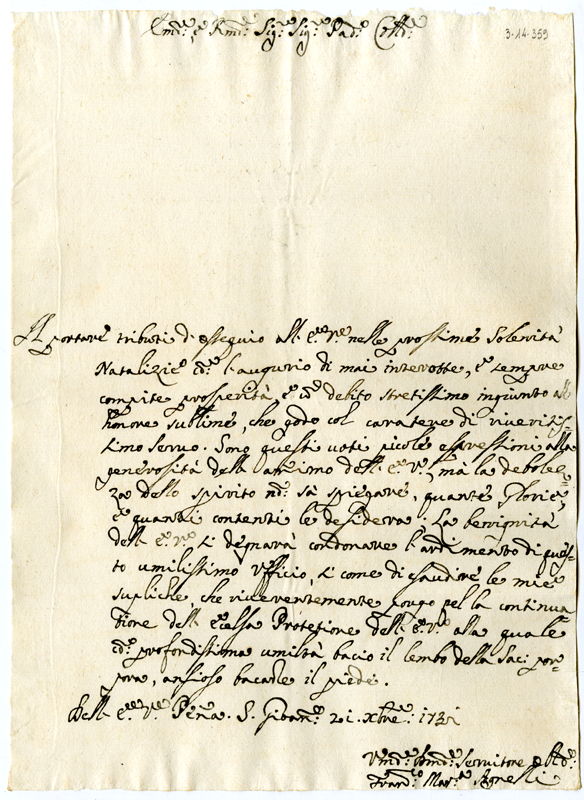 Em.mo e Rmo Sig.r Sig.r Pad.
3-14-359
Il portare tributi di ossequio all E.V. nelle prossime Solenità
Natalizie co. l'augurio di mai interotte, e sempre
compite prosperità, è un debito stretissimo ingiunto all
honore sublime, che godo col caratere di riveritis=
simo servo. Sono questi voti picole espressioni alla
generosità dell animo dell E.V., mà la debolez=
za dello spirito no. sà spiegare, quante Glorie,
e quanti contenti le desidera. La benignità
dell E.V. si degnarà condonare l'ardimento di ques=
to umilissimo Ufficio, si come di esaudire le mie
supliche, che riverentemente porgo pel la continua
tione dell eccelsa Protetione dell E.V. alla quale
co. profondissima umiltà bacio il lembo della Sac: por=
pora, ansioso bacarle il piede.
Dell E.V. Pena. S. Gioan. 21. Xbre. 1731
Servitore
Mar. Agnelli